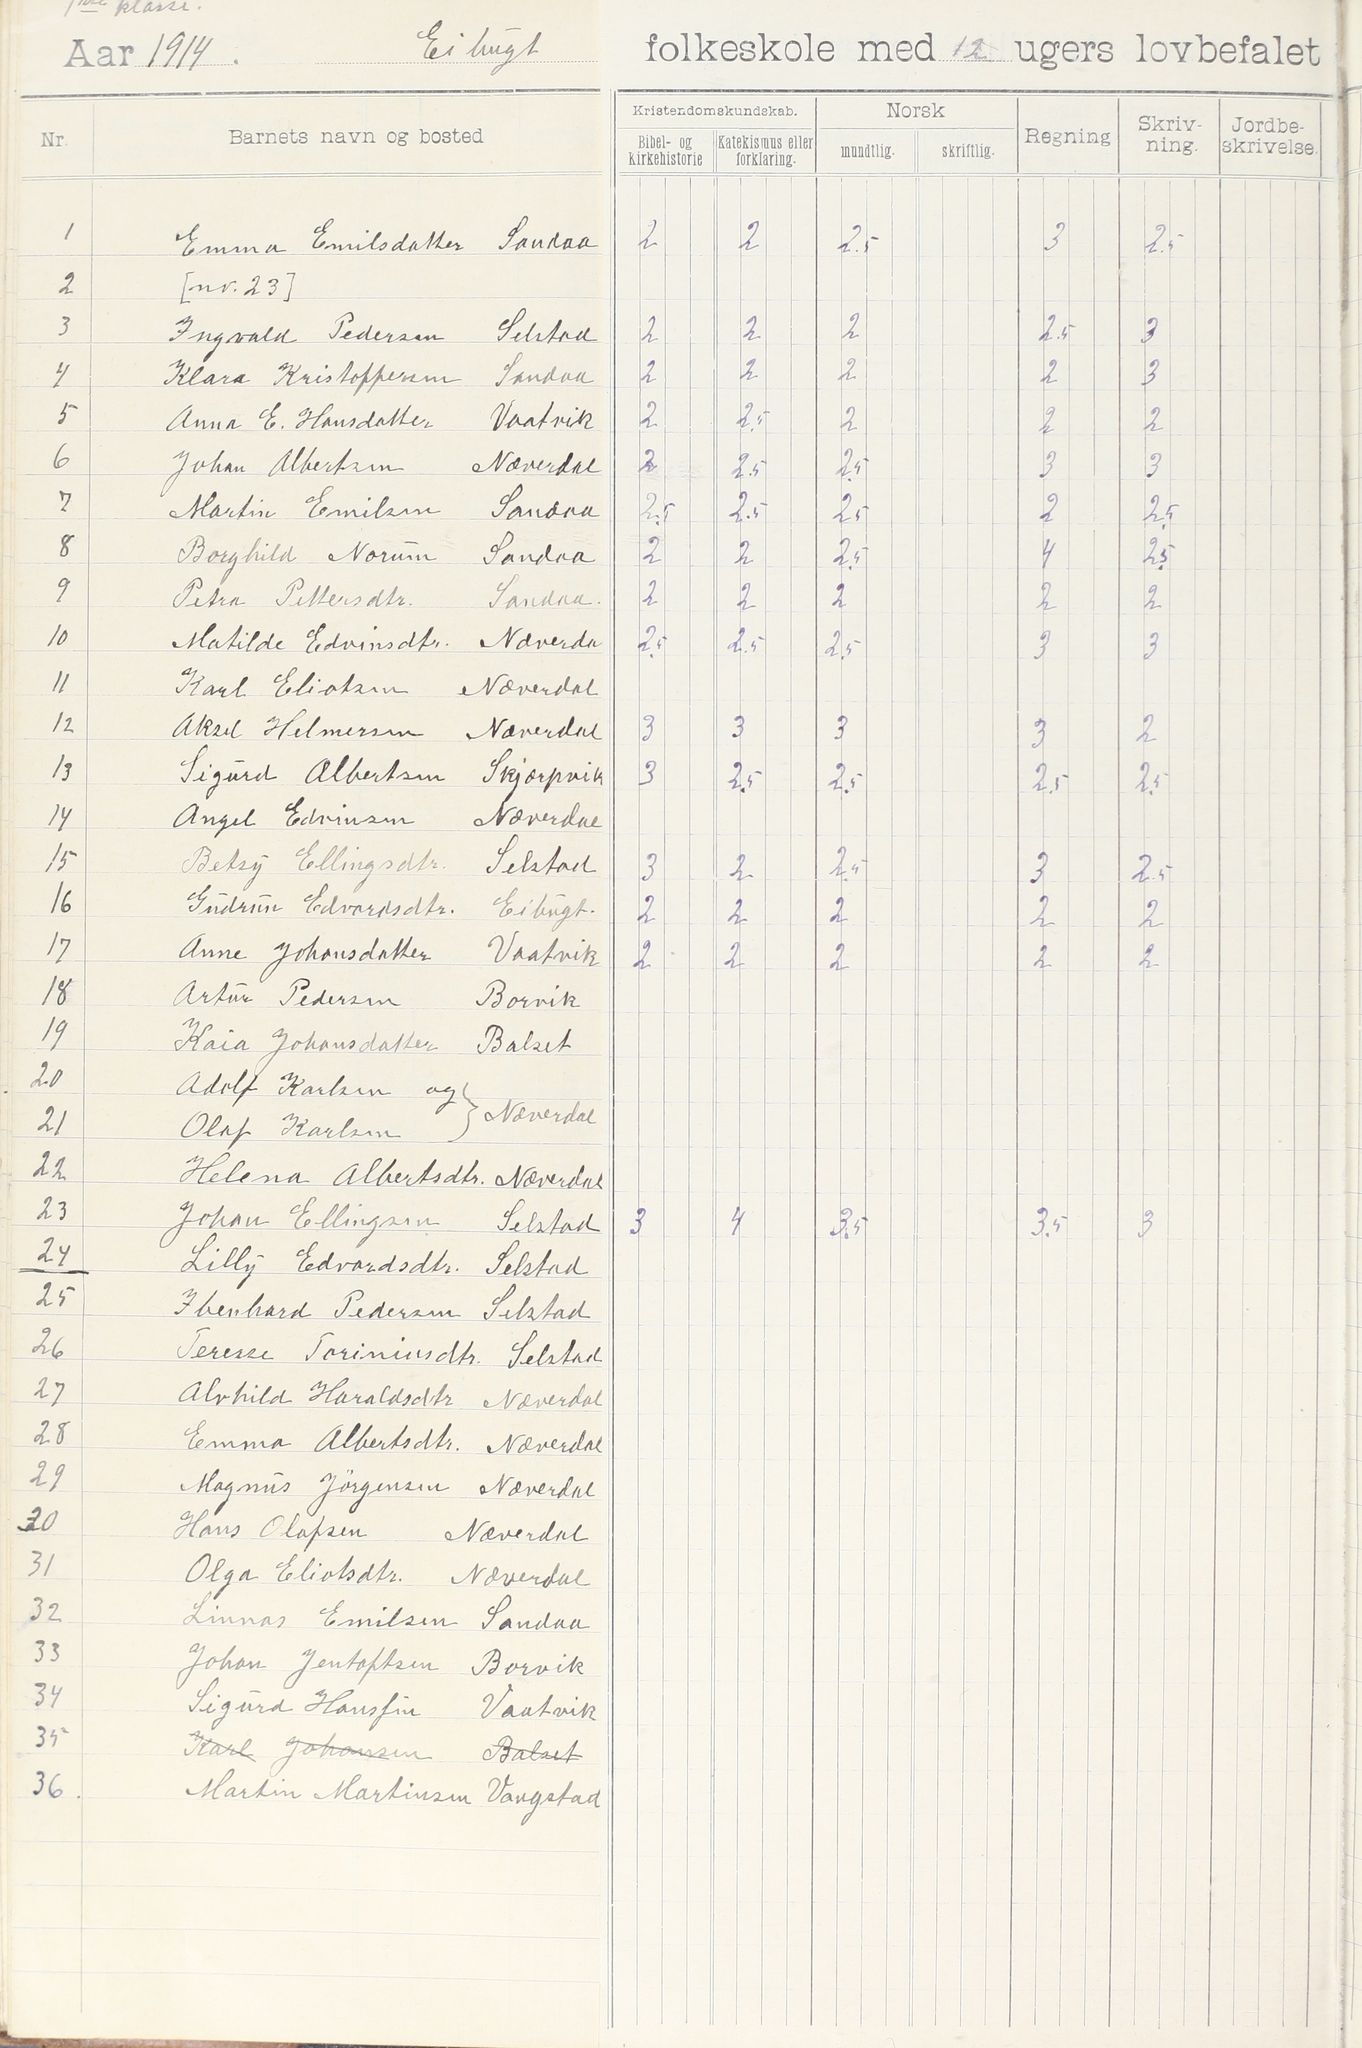 1ste klasse.
Aar 1914. Eibugt folkeskole med 12 ugers lovbefalet
Nr. Barnets navn og bosted Kristendomskundskab. Norsk Regning Skriv-ning. Jordbe-skrivelse.
Bibel- og kirkehistorie Katekismus eller forklaring. mundtlig. skriftlig.
1 Emma Emilsdatter Sandaa 2 2 2.5 3 2.5
2 [nr. 23]
3 Ingvald Pedersen Selstad 2 2 2 2.5 3
4 Klara Kristoppersen Sandaa 2 2 2 2 3
5 Anna E. Hansdatter Vaatvik 2 2.5 2 2 2
6 Johan Albertsen Næverdal 2 2.5 2.5 3 3
7 Martin Emilsen Sandaa 2.5 2.5 2.5 2 2.5
8 Borghild Norum Sandaa 2 2 2.5 4 2.5
9 Petra Pettersdtr. Sandaa. 2 2 2 2 2
10 Matilde Edvinsdtr. Næverda 2.5 2.5 2.5 3 3
11 Karl Eliotsen Næverdal
12 Aksel Helmersen Næverdal 3 3 3 3 2
13 Sigurd Albertsen Skjærpvik 3 2.5 2.5 2.5 2.5
14 Angel Edvinsen Næverdal
15 Betsy Ellingsdtr. Selstad 3 2 2.5 3 2.5
16 Gudrun Edvardsdtr. Eibugt. 2 2 2 2 2
17 Anne Johansdatter Vaatvik 2 2 2 2 2
18 Artur Pedersen Borvik
19 Kaia Johansdatter Balset
20 Adolf Karlsen og } Næverdal
21 Olaf Karlsen
22 Helena Albertsdtr. Næverdal
23 Johan Ellingsen Selstad 3 4 3.5 3.5 3
24 Lilly Edvardsdtr. Selstad
25 Ibenhard Pedersen Selstad
26 Teresse Toriniusdtr. Selstad
27 Alvhild Haraldsdtr Næverdal
28 Emma Albertsdtr. Næverdal
29 Magnus Jörgensen Næverdal
30 Hans Olafsen Næverdal
31 Olga Eliotsdtr. Næverdal
32 Linnas Emilsen Sandaa
33 Johan Jentoftsen Borvik
34 Sigurd Hansfin Vaatvik
35 Karl Johansen Balset
36. Martin Martinsen Vangstad